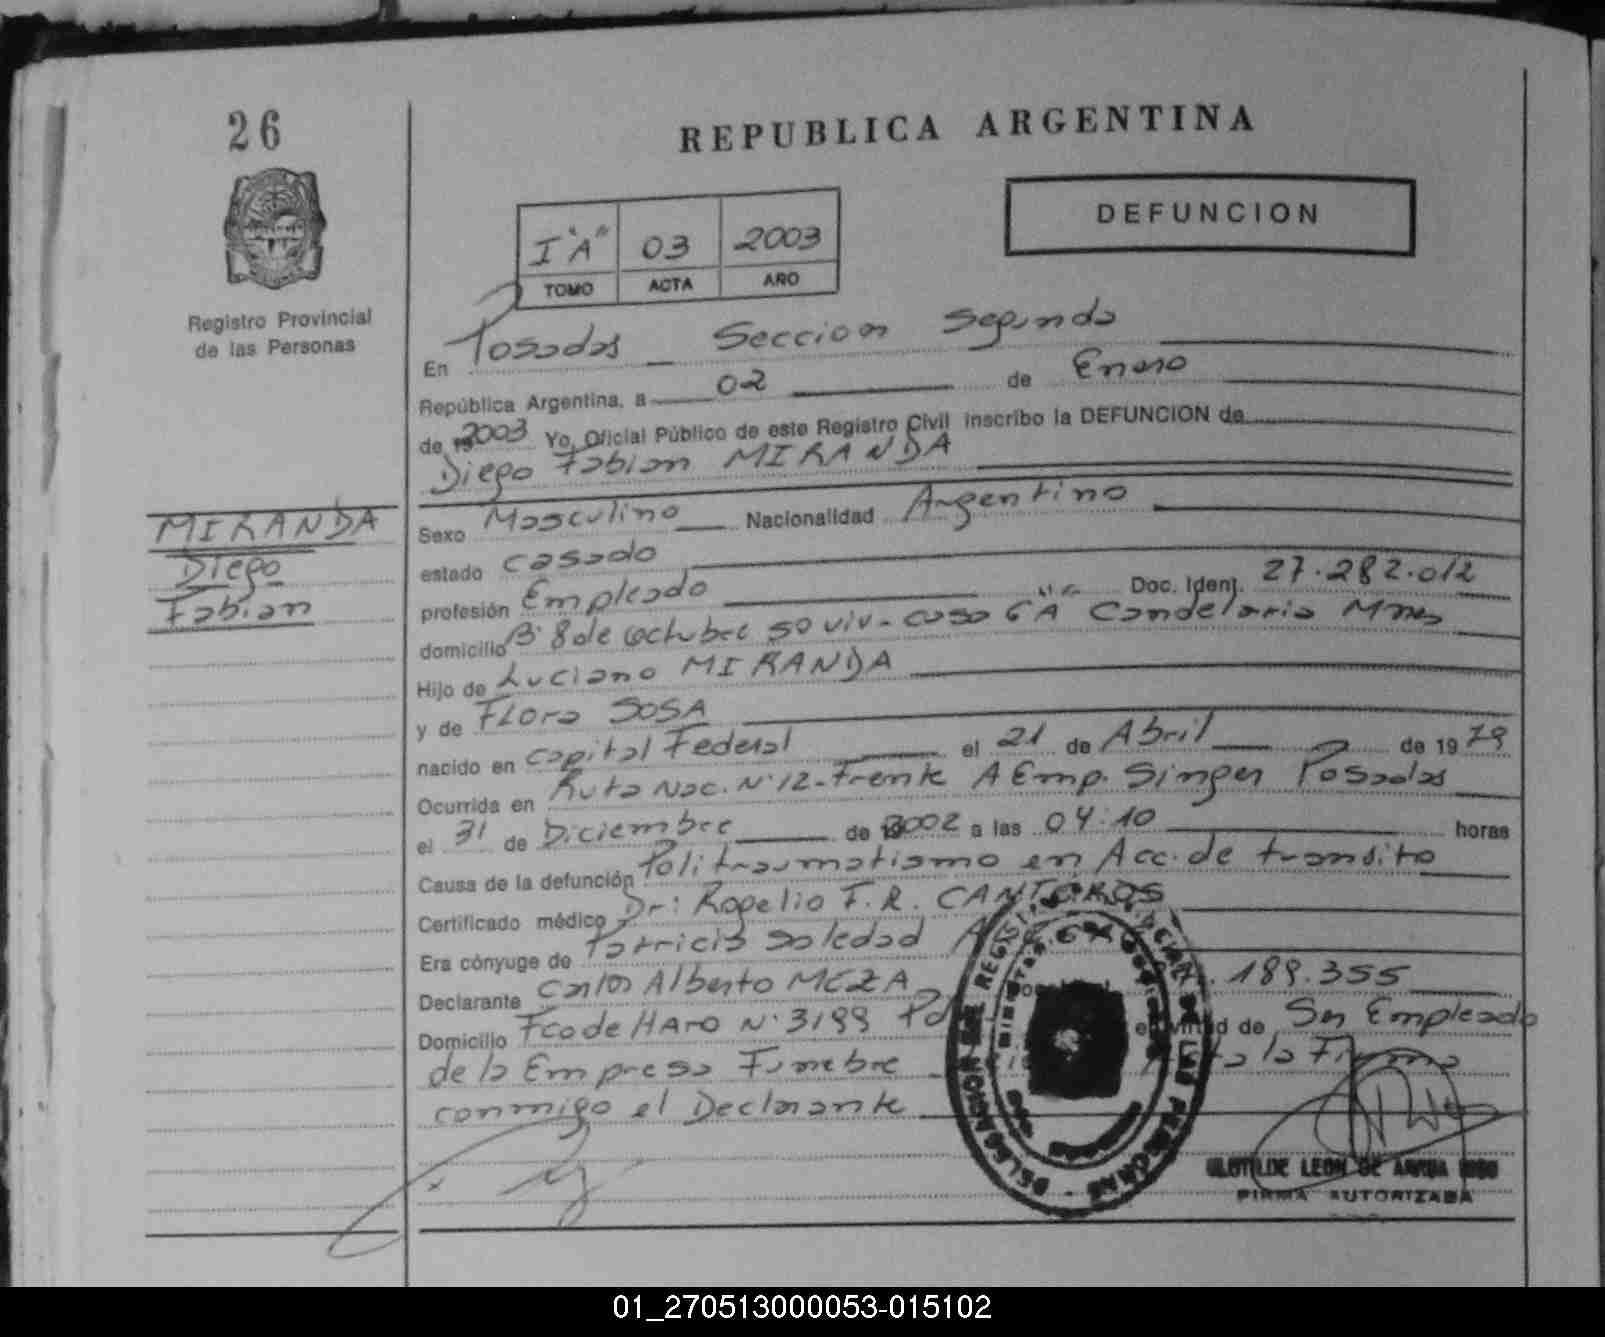 26
REPUBLICA ARGENTINA
DEFUNCION
I "A" 03 2003
TOMO ACTA AÑO
Registro Provincial
de las Personas
En Posadas Seccion Segunda
República Argentina, a 02 de Enero
de 2003 Yo, Oficial Público de este Registro Civil inscribo la DEFUNCION de
Diego Fabian MIRANDA
MIRANDA
Diego
Fabian
Sexo Masculino Nacionalidad Argentino
estado casado
profesión Empleado Doc. Ident. 27.282.012
domicilio B° 8 de Octubre 50 viv - casa 6 A Candelaria Mnes
Hijo de Luciano MIRANDA
y de Flora SOSA
nacido en Capital Federal el 21 de Abril de 1979
Ocurrida en Ruta Nac. N° 12 - Frente A Emp. Singer Posadas
el 31 de Diciembre de 2002 a las 04:10 horas
Causa de la defunción Politraumatismo en Acc. de transito
Certificado médico Dr: Rogelio F. R. CANTEROS
Era cónyuge de Patricia Soledad
Declarante Carlos Alberto MEZA 189.355
Domicilio Fco de HARO N° 3199 en virtud de Ser Empleado
de la Empresa Funebre la Firma
conmigo el Declarante
DELEGACION DE REGISTRO DE LAS PERSONAS
CLOTILDE LEON DE
FIRMA AUTORIZADA
01_270513000053-015102